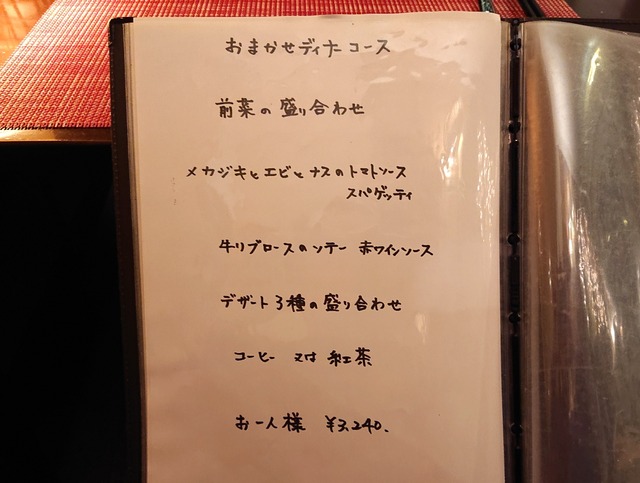 おまかせディナーコース
前菜の盛り合わせ
メカジキとエビとナスのトマトソース
スパゲッティ
牛リブロースのソテー 赤ワインソース
デザート3種の盛り合わせ
コーヒー 又は 紅茶
お一人様 ¥3,240.